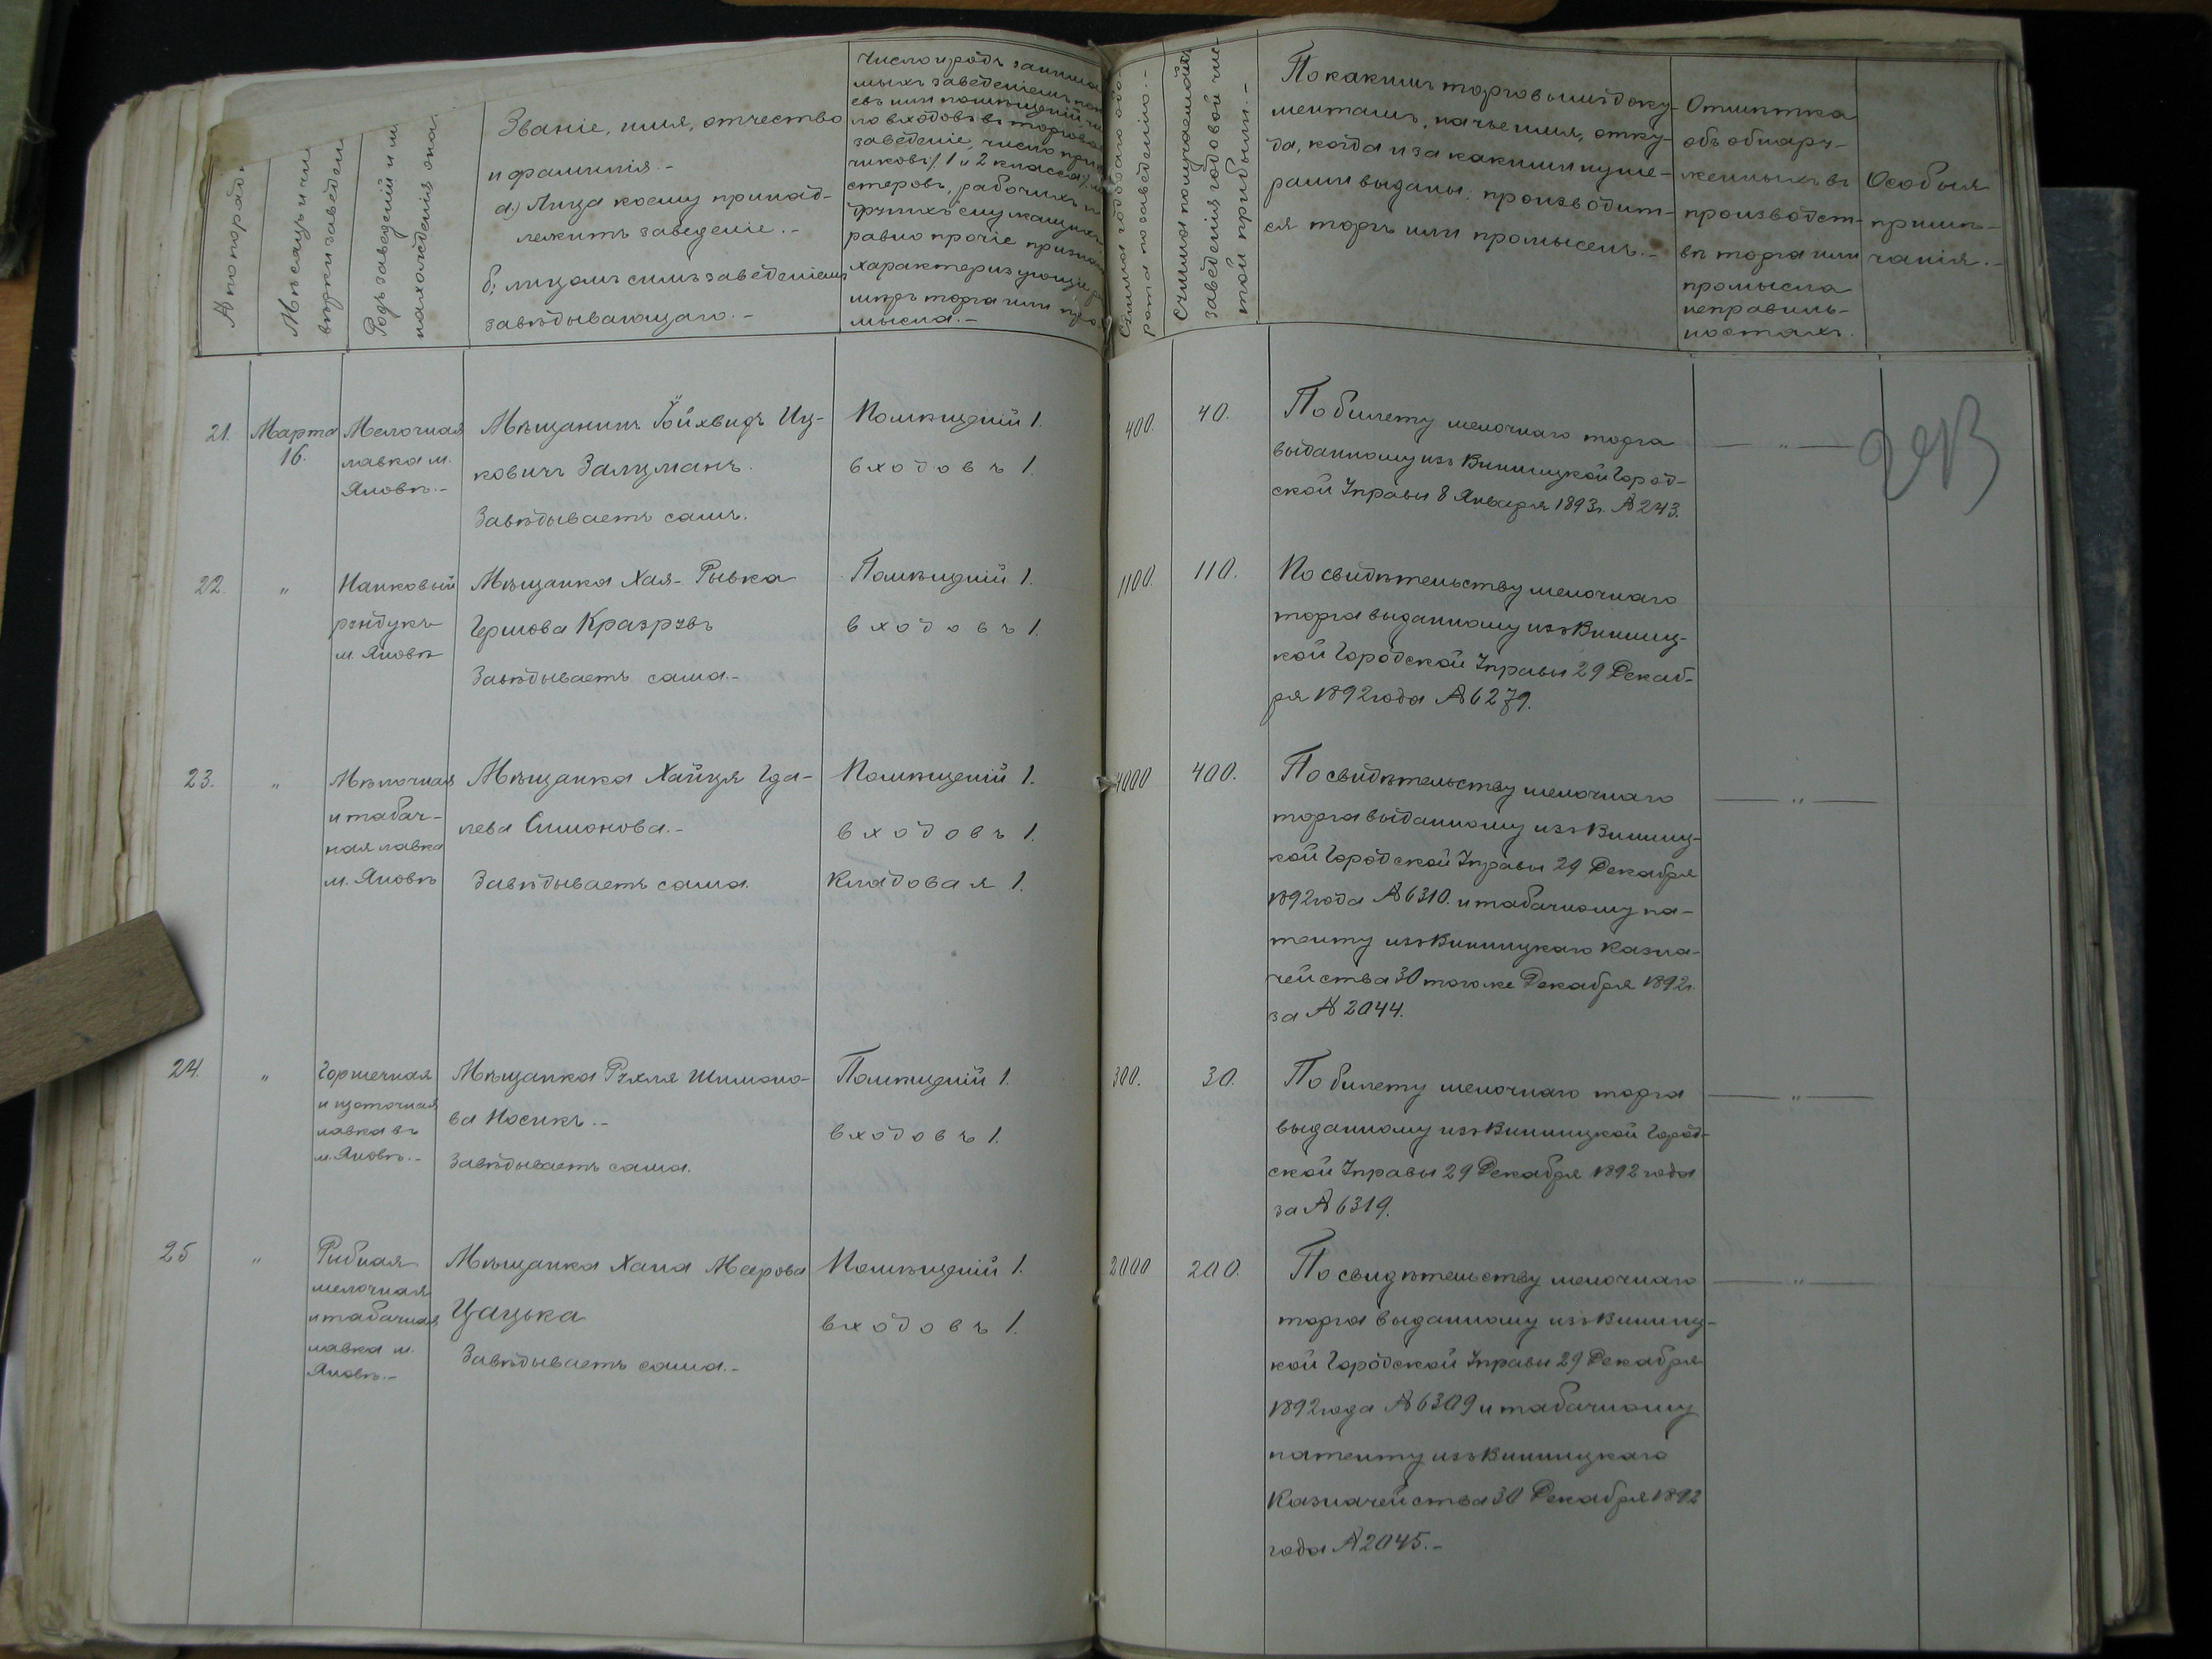 № по поряд
Мѣсяцъ и чи
вѣрки заведен
Родъ заведеній и м
нахожденія она.
Званіе, имя, отчество
и фамилія.-
а) Лица коему принад-
лежитъ заведеніе.-
б) лицомъ симъ заведеніемъ
завѣдывающаго.-
Число и родъ занима
мыхъ заведеніемъ пок
евъ или помѣщеній чи
ло входовъ въ торгов
заведеніе, число прик
чиковъ (1 и 2 класса), ма
стеровъ, рабочихъ и
другихъ служащихъ
равно прочіе признаки
характеризующіе раз
мѣръ торга или про
мысла.-
Сумма годоваго обо-
рота по заведенію.-
Сумма получаемой
заведенія годовой чис
той прибыли.-
По какимъ торговымъ доку-
ментамъ, на чье имя, отку-
да, когда и за какими нуме-
рами выданы: производит-
ся торгъ или промыселъ.-
Отмѣтка
объ обнару-
женныхъ въ
производст-
вѣ торга или
промысла
неправиль-
ностяхъ.
Особыя
примѣ-
чанія.-
21. Марта
16.
Мелочная
лавка м.
Яновѣ.-
Мѣщанинъ Іойхвидъ Иц-
ковичъ Залцманъ.
Завѣдываетъ самъ.
Помѣщеній 1.
входовъ 1.
400. 40.
По билету мелочнаго торга
выданному изъ Винницкой Город-
ской Управы 8 Января 1893г. № 243.
— „ —
203
22. „
Нанковый
рундукъ
м. Яновѣ
Мѣщанка Хая-Рывка
Гершова Кразрувъ
Завѣдываетъ сама.-
Помѣщеній 1.
входовъ 1.
1100. 110.
По свидѣтельству мелочнаго
торга выданному изъ Винниц-
кой Городской Управы 29 Декаб-
ря 1892 года № 6279.
23. „
Мѣлочная
и табач-
ная лавка
м. Яновѣ
Мѣщанка Хайця Гда-
лева Симонова.-
Завѣдываетъ сама.
Помѣщеній 1.
входовъ 1.
Кладовая 1.
4000 400.
По свидѣтельству мелочнаго
торга выданному изъ Винниц-
кой Городской Управы 29 Декабря
1892 года № 6310. и табачному па-
тенту изъ Винницкаго Казна-
чейства 30 того же Декабря 1892г.
за № 2044.
— „ —
24. „
Горшечная
и щоточная
лавка въ
м. Яновѣ.-
Мѣщанка Рухля Шимоно-
ва Носикъ.-
Завѣдываетъ сама.
Помѣщеній 1.
входовъ 1.
300. 30.
По билету мелочнаго торга
выданному изъ Винницкой Город-
ской Управы 29 Декабря 1892 года
за № 6319.
— „ —
25 „
Рибная
мелочная
и табачная
лавка м.
Яновѣ.-
Мѣщанка Хана Меерова
Цацька
Завѣдываетъ сама.-
Помѣщеній 1.
входовъ 1.
2000 200.
По свидѣтельству мелочнаго
торга выданному изъ Винниц-
кой Городской Управы 29 Декабря
1892 года № 6309 и табачному
патенту изъ Винницкаго
Казначейства 30 Декабря 1892
года № 2045.-
— „ —